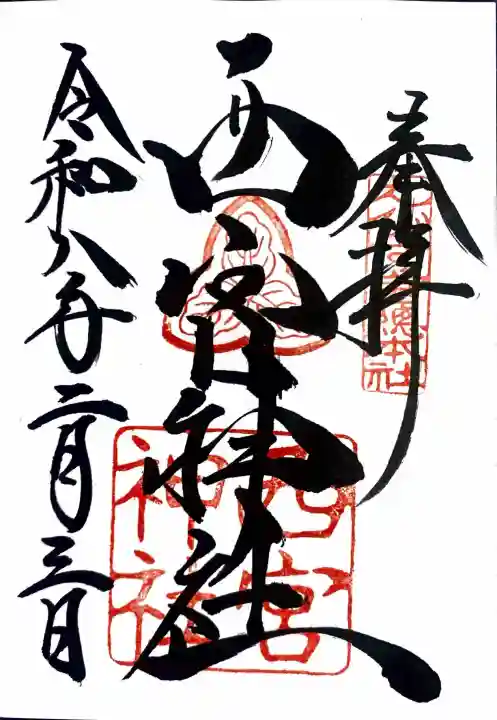 奉拝
西宮神社
令和八年二月三日
西宮
神社